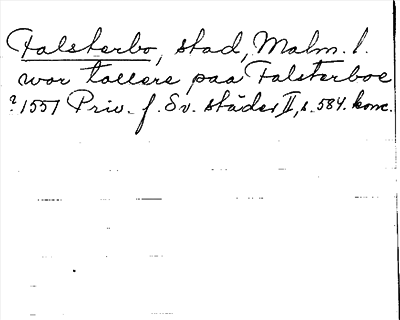 Falsterbo, stad, Malm. l.
wor tollere paa Falsterboe
? 1551 Priv. f. Sv. städer II, s. 584. konc.